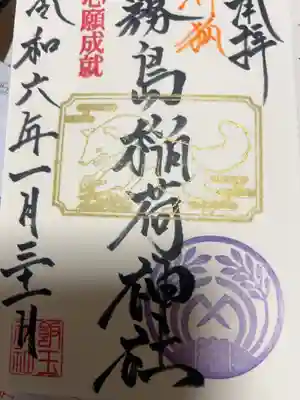 奉拝
霧島稲荷神社
心願成就
令和六年一月三十一日